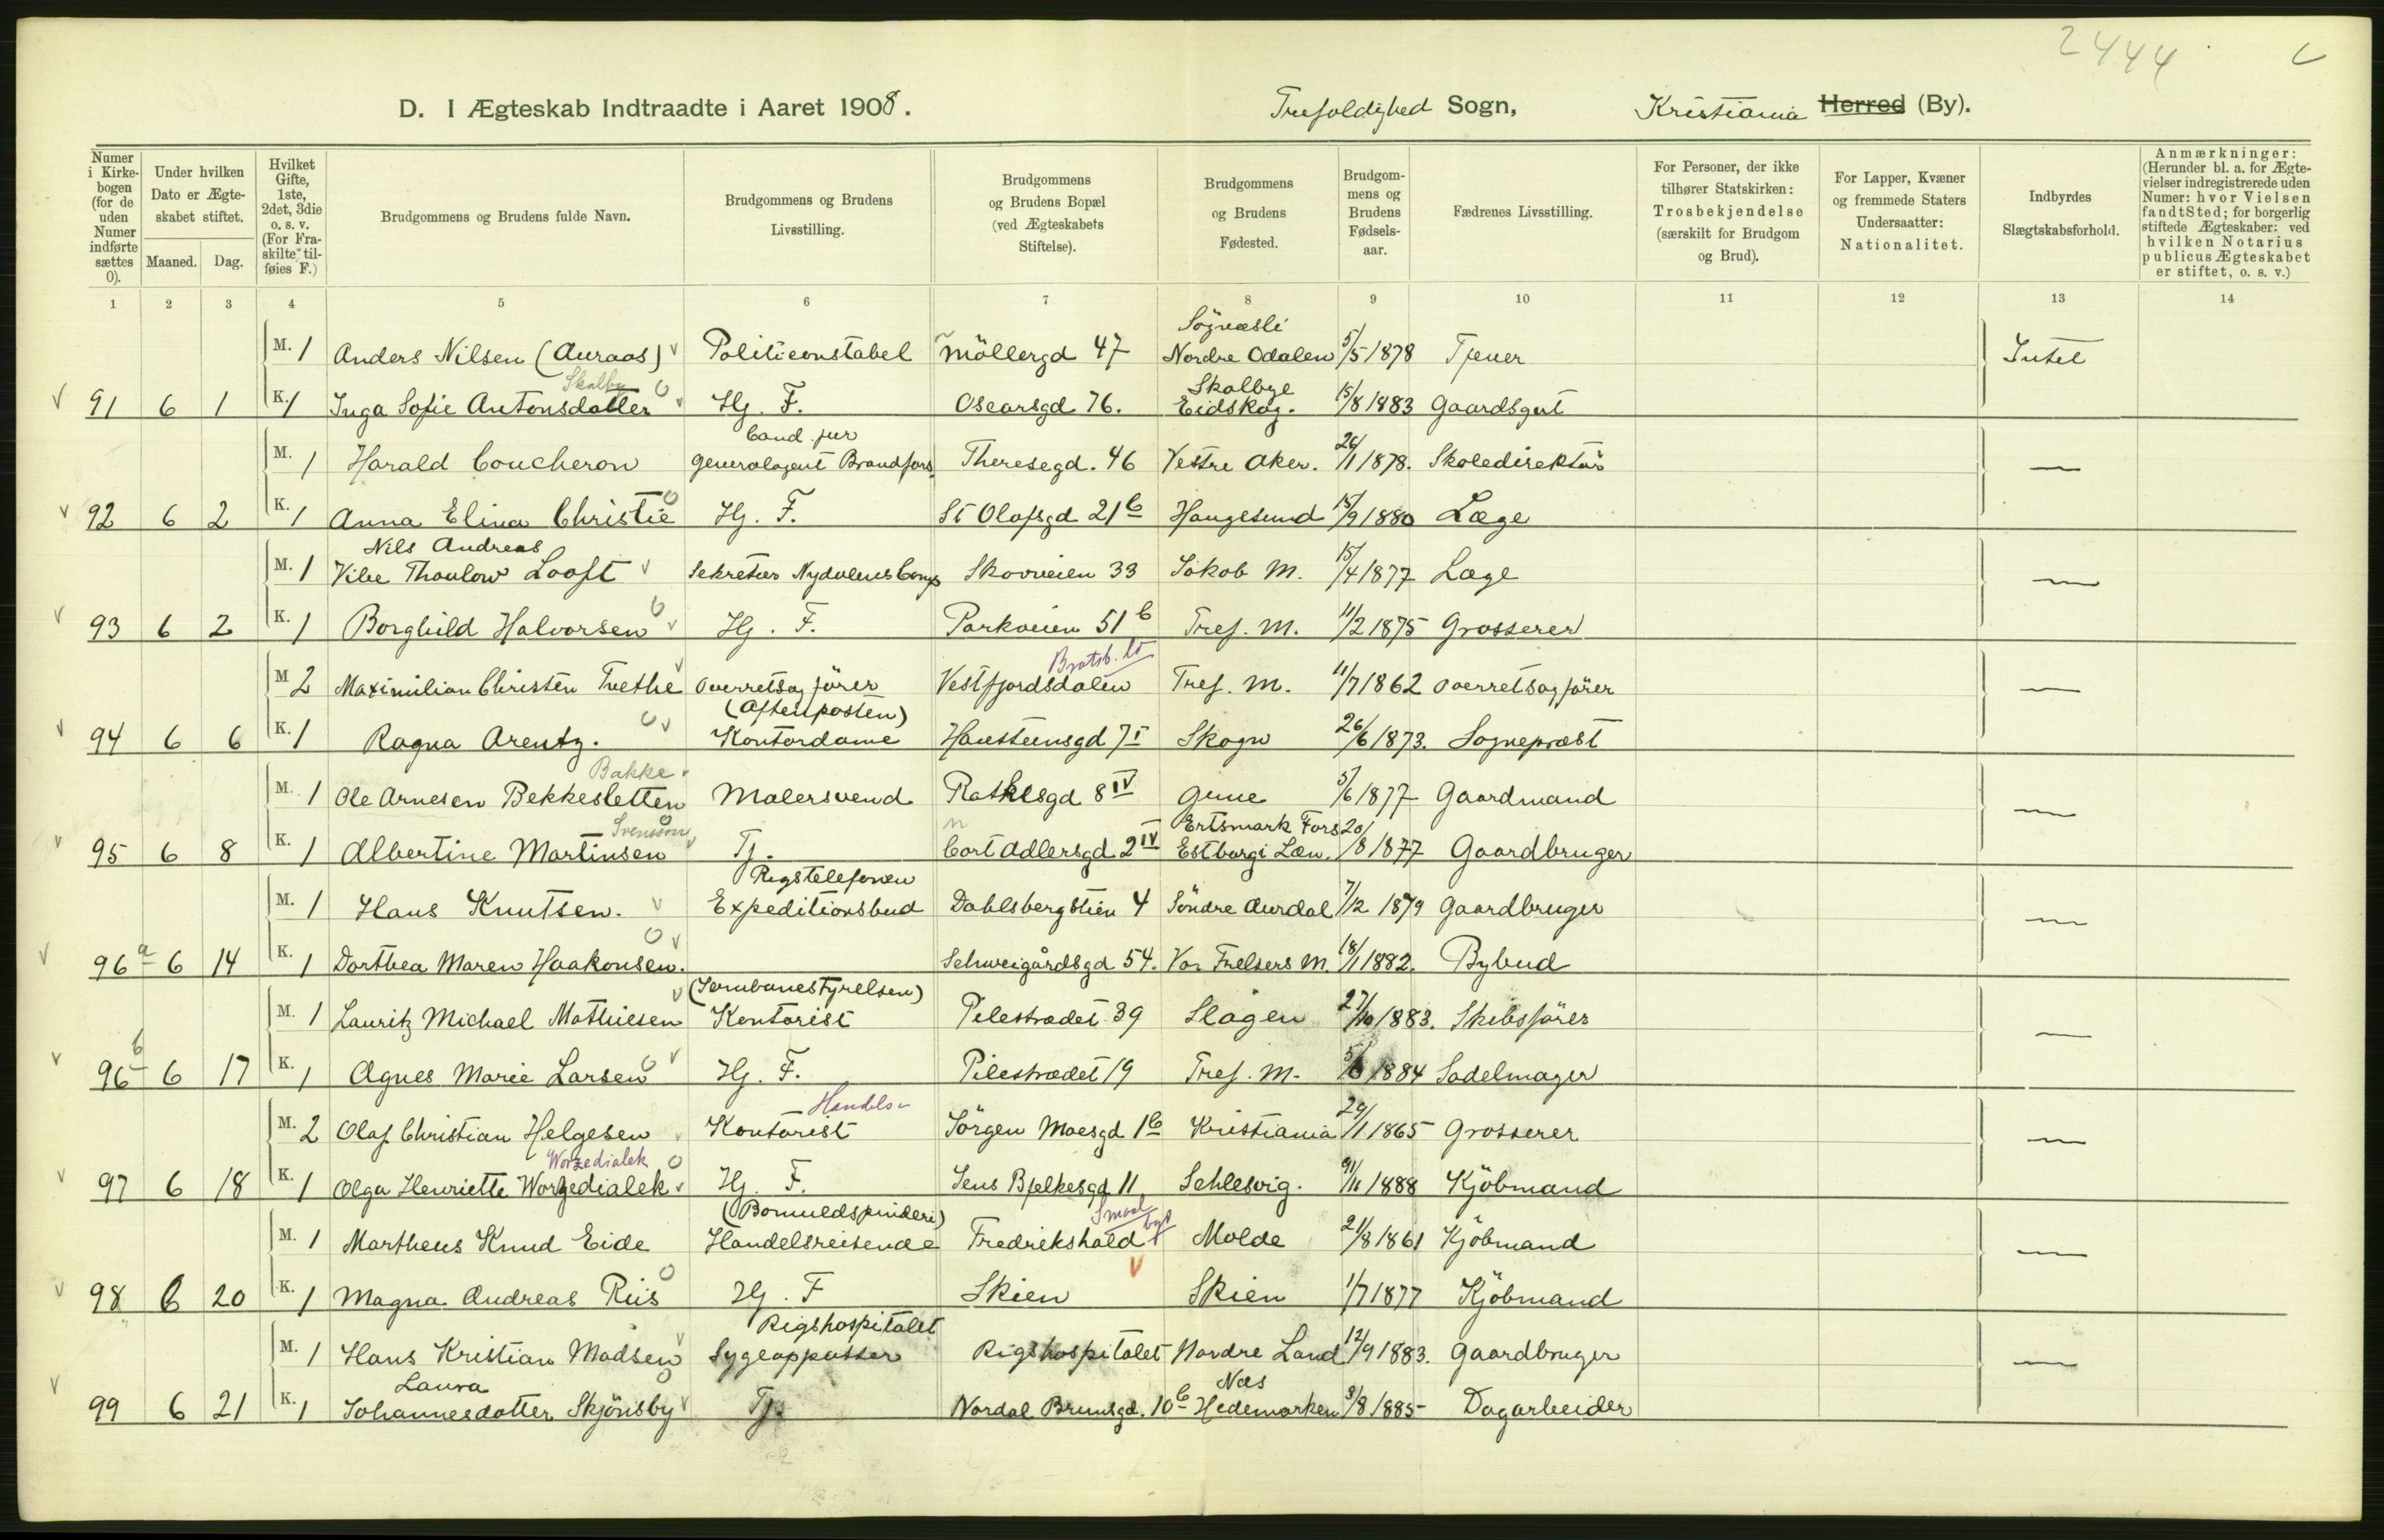 2444
D. I Ægteskab Indtraadte i Aaret 1908. Trefoldighed Sogn, Kristiania Herred (By).
Numer i Kirkebogen (for de uden Numer indførte sættes 0).
Under hvilken Dato er Ægteskabet stiftet.
Maaned. Dag.
Hvilket Gifte, 1ste, 2det, 3die o. s. v. (For Fraskilte tilføies F.)
Brudgommens og Brudens fulde Navn.
Brudgommens og Brudens Livsstilling.
Brudgommens og Brudens Bopæl (ved Ægteskabets Stiftelse).
Brudgommens og Brudens Fødested.
Brudgommens og Brudens Fødselsaar.
Fædrenes Livsstilling.
For Personer, der ikke tilhører Statskirken: Trosbekjendelse (særskilt for Brudgom og Brud).
For Lapper, Kvæner og fremmede Staters Undersaatter: Nationalitet.
Indbyrdes Slægtskabsforhold.
Anmærkninger: (Herunder bl. a. for Ægtevielser indregistrerede uden Numer: hvor Vielsen fandt Sted; for borgerlig stiftede Ægteskaber: ved hvilken Notarius publicus Ægteskabet er stiftet, o. s. v.)
1 2 3 4 5 6 7 8 9 10 11 12 13 14
Sögnæsli
M. 1 Anders Nilsen (Auraas) Politiconstabel Möllergd 47 Nordre Odalen 5/5 1878 Tjener Intet
Skalby Skalbye
91 6 1 K. 1 Inga Sofie Antonsdatter Hj. F. Oscarsgd 76. Eidskog. 15/8 1883 Gaardsgut
Cand. jur
M. 1 Harald Coucheron Generalagent Brandfors. Theresegd. 46 Vestre Aker. 26/1 1878. Skoledirektör —
92 6 2 K. 1 Anna Elina Christie Hj. F. St Olafsgd 21 b Haugesund 15/9 1880 Læge
Nils Andreas
M. 1 Vibe Thaulow Looft Sekretær Nydalens Comp Skovveien 33 Jakob M. 15/4 1877 Læge —
93 6 2 K. 1 Borghild Halvorsen Hj. F. Parkveien 51 b Tref. M. 11/2 1875 Grosserer
Bratsb.
M 2 Maximilian Christen Trethe Overretsagförer Vestfjordsdalen Tref. M. 11/7 1862 Overretsagförer —
(Aftenposten)
94 6 6 K. 1 Ragna Arentz. Kontordame Hausteensgd 7 I Skogn 26/6 1873. Sogneprest
Bakke
M. 1 Ole Arnesen Bekkesletten Malersvend Rathkesgd 8 IV 5/6 1877 Gaardmand —
Svensson Ertsmark Fors
95 6 8 K. 1 Albertine Martinsen Tj. Cort Adlersgd 2 IV 20/8 1877 Gaardbruger
Rigstelefonen
M. 1 Hans Knutsen. Expeditionsbud Dahlsbergstien 4 Söndre Aurdal 7/12 1879 Gaardbruger —
96 a 6 14 K. 1 Dorthea Maren Haakonsen. Schweigårdsgd 54. Vor Frelsers M. 18/1 1882. Bybud
(Jernbanestyrelsen)
M. 1 Lauritz Michael Mathiesen Kontorist Pilestrædet 39 Slagen 27/10 1883. Skibsförer —
96 b 6 17 K. 1 Agnes Marie Larsen Hj. F. Pilestrædet 19 Tref. M. 1884 Sadelmager
Handels
M. 2 Olaf Christian Helgesen Kontorist Jörgen Moesgd 1 b Kristiania 29/1 1865 Grosserer —
Worzedialek
97 6 18 K. 1 Olga Henriette Worzedialek Hj. F. Jens Bjelkesgd 11 Schlesvig. 9/11 1888 Kjöbmand
(Bomuldspinderi) Smaal
M. 1 Martheus Knud Eide Handelsreisende Fredrikshald Molde 21/8 1861 Kjöbmand —
98 6 20 K. 1 Magna Andreas Riis Hj. F Skien Skien 1/7 1877 Kjöbmand
Rigshospitalet
M. 1 Hans Kristian Madsen Sygeoppasser Rigshospitalet Nordre Land 12/9 1883. Gaardbruger —
Laura Næs
99 6 21 K. 1 Johannesdatter Skjönsby Tj. Nordal Brunsgd. 10 b Hedemarken 3/8 1885 Dagarbeider